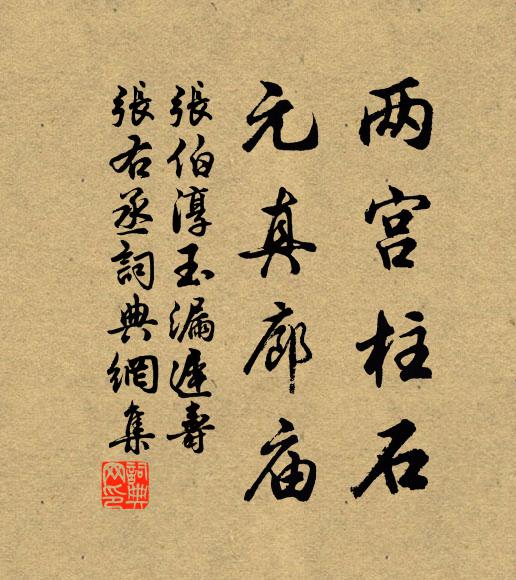 两宫柱石
元真廊庙
張伯淳玉漏遲壽
張右丞詞典網集
詞典
网印